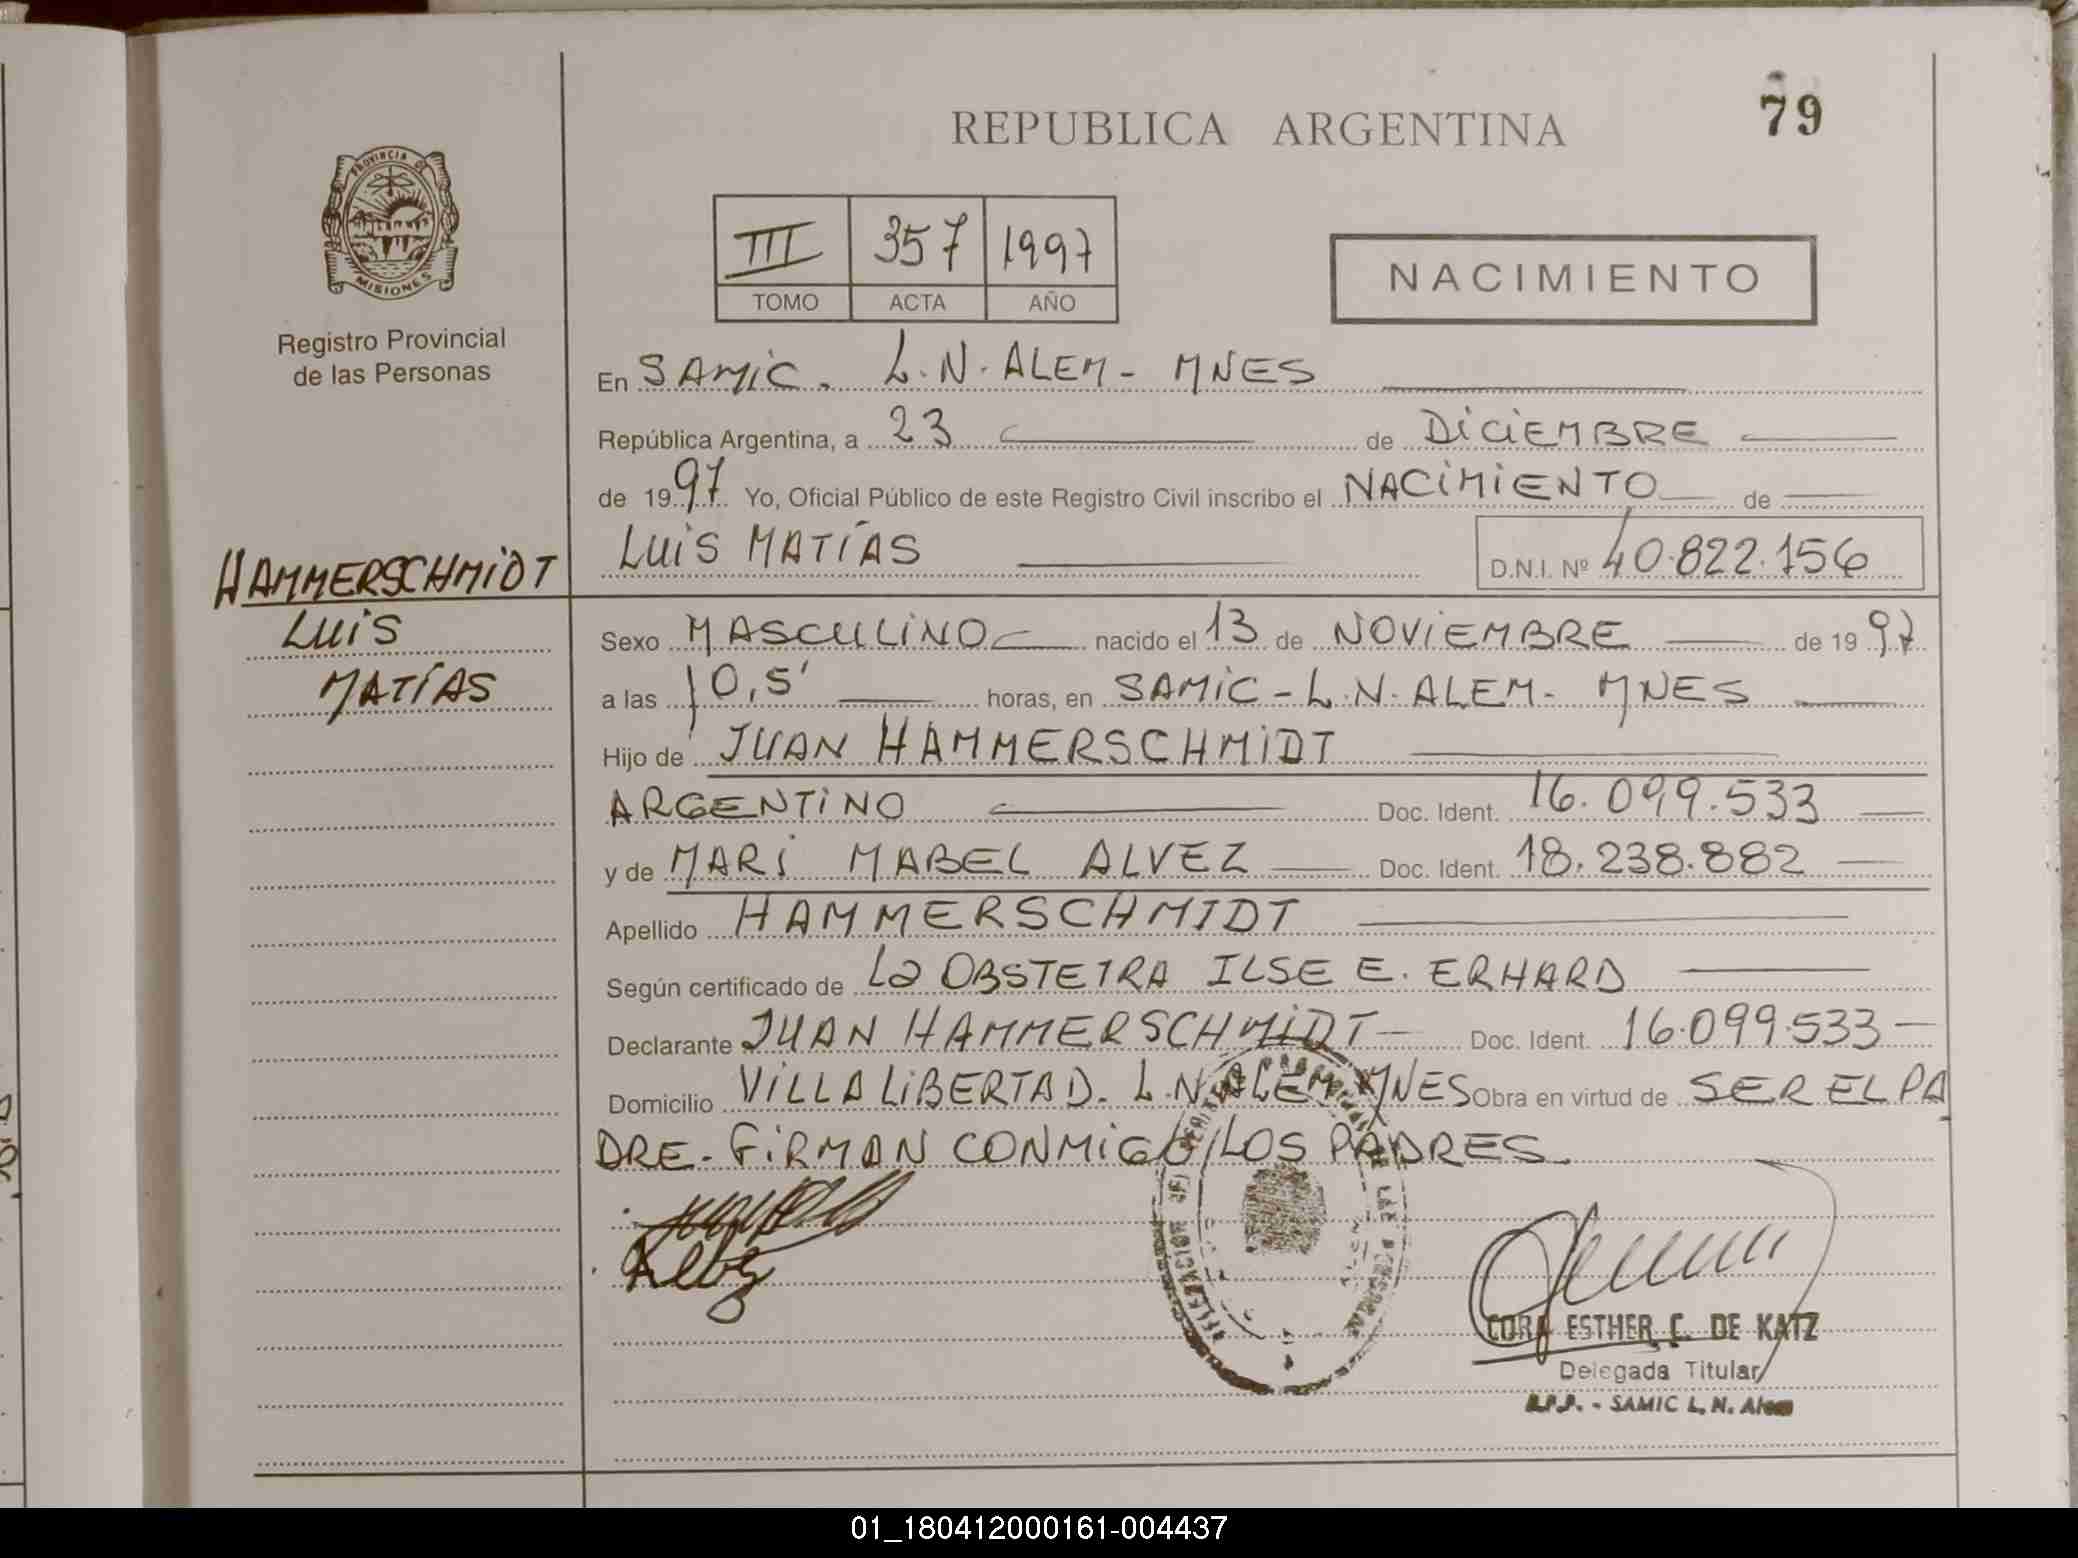 REPUBLICA ARGENTINA
79
PROVINCIA DE
MISIONES
Registro Provincial
de las Personas
III 357 1997
TOMO ACTA AÑO
NACIMIENTO
En SAMiC. L.N. ALEM - MNES
República Argentina, a 23 de DiCiEMBRE
de 1997 Yo, Oficial Público de este Registro Civil inscribo el NACiMiENTO de
LUiS MATÍAS D.N.I. Nº 40.822.156
HAMMERSCHMiDT
LUiS
MATÍAS
Sexo MASCULiNO nacido el 13 de NOViEMBRE de 1997
a las 10,5' horas, en SAMiC - L.N. ALEM - MNES
Hijo de JUAN HAMMERSCHMiDT
ARGENTiNO Doc. Ident. 16.099.533
y de MARi MABEL ALVEZ Doc. Ident. 18.238.882
Apellido HAMMERSCHMIDT
Según certificado de La OBSTETRA ILSE E. ERHARD
Declarante JUAN HAMMERSCHMiDT Doc. Ident. 16.099.533
Domicilio ViLLA LiBERTAD. L.N. ALEM MNES Obra en virtud de SER EL PA
DRE. FiRMAN CONMiGO LOS PADRES
CORA ESTHER C. DE KATZ
Delegada Titular
R.P.P. - SAMIC L. N. Alem
01_180412000161-004437